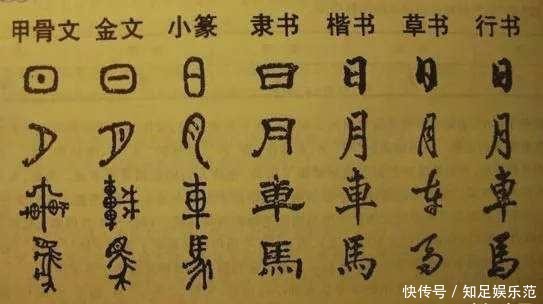 甲骨文 金文 小篆 隶书 楷书 草书 行书
日 日 日 日 日 日 日
月 月 月 月 月 月 月
車 車 車 車 車 车 車
馬 馬 馬 馬 馬 马 馬
快传号／知足娱乐范